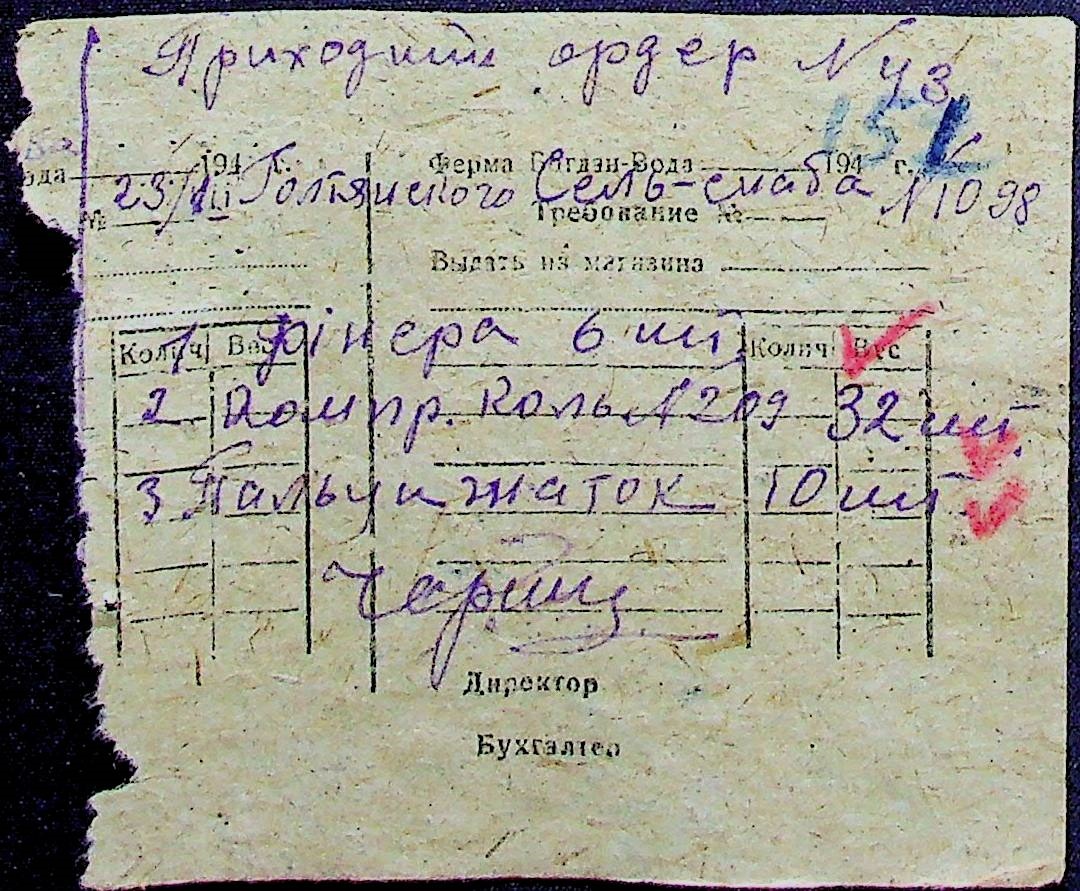 Приходный ордер № 43
151
194 г. Ферма Богдан-Вода 194 г.
23/VII Голтянского Сель-снаба №1098
№ Требование №
Выдать из магазина
1 фінера 6 шт
Колич Вес Колич Вес
2 Компр. Коль. №209 32 шт.
3 Пальци жаток 10 шт
Директор
Бухгалтер